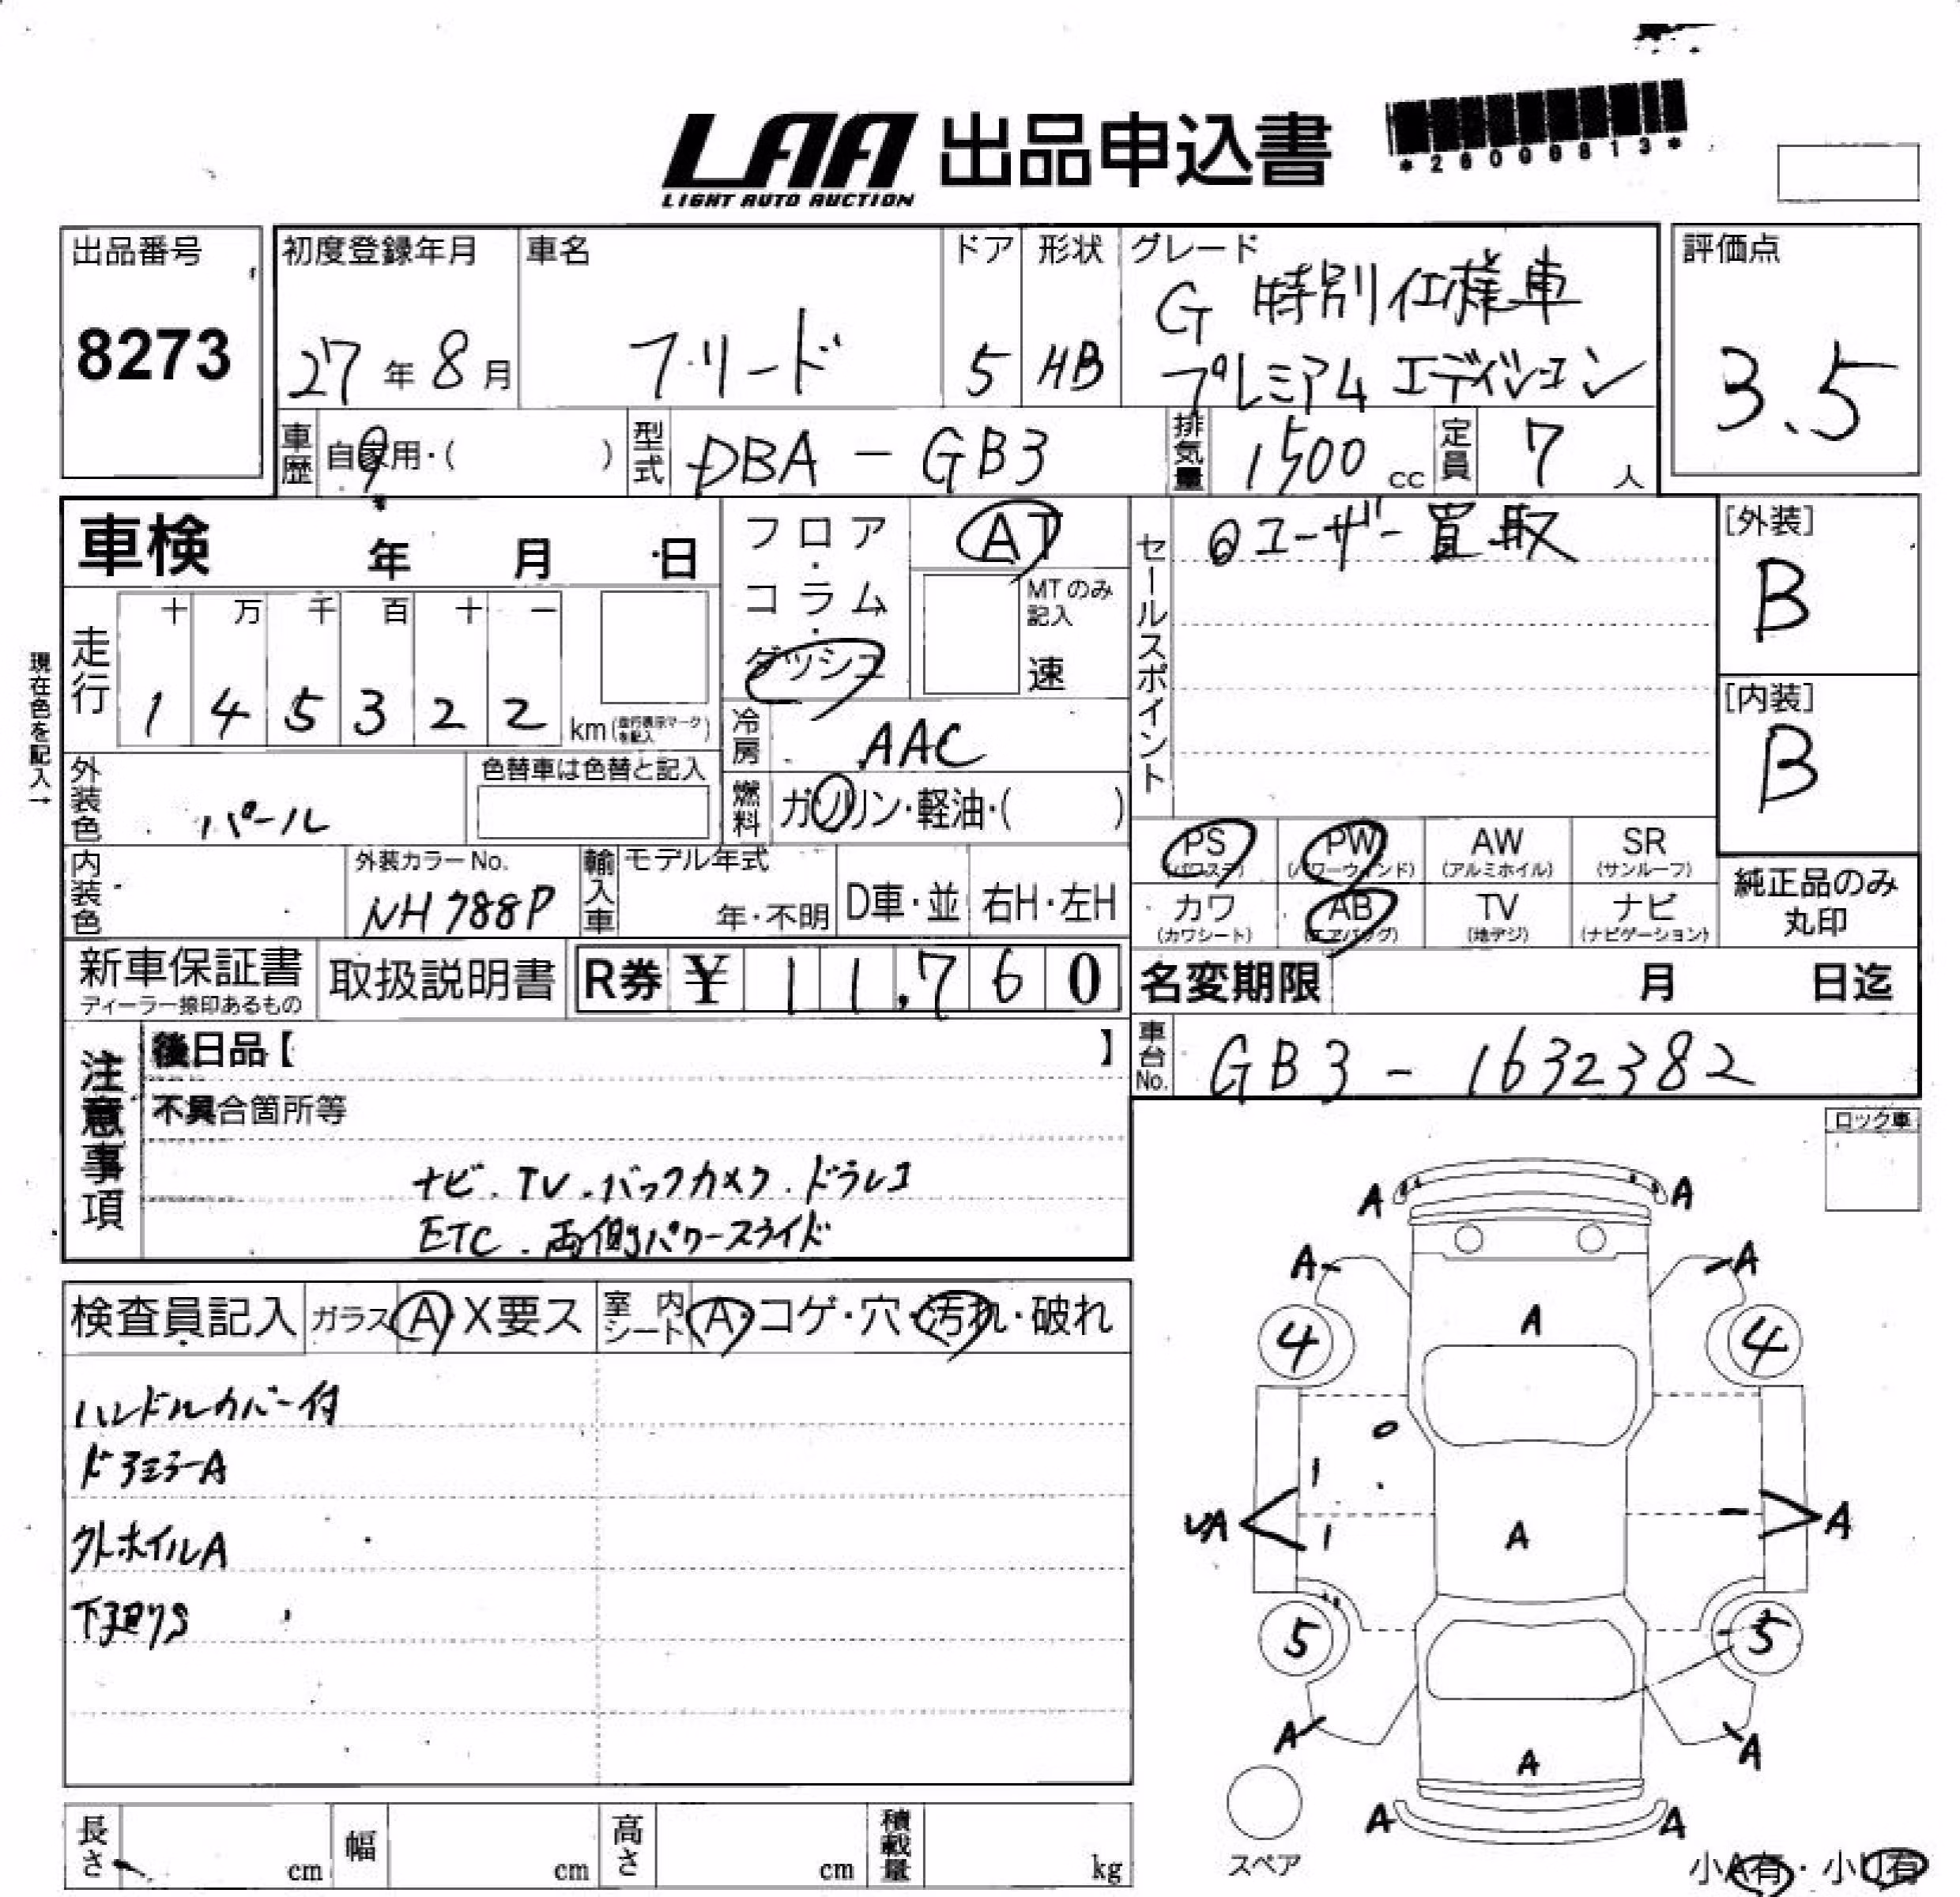 LAA 出品申込書
LIGHT AUTO AUCTION
*26090813*
出品番号
8273
初度登録年月
27年8月
車名
フリード
ドア
5
形状
HB
グレード
G 特別仕様車
プレミアムエディション
評価点
3.5
車歴
自家用・( )
型式
DBA-GB3
排気量
1500cc
定員
7人
車検 年 月 日
フロア・コラム・ダッシュ
AT
MTのみ記入
速
セールスポイント
◎ユーザー買取
[外装]
B
[内装]
B
現在色を記入→
走行
十 万 千 百 十 一
1 4 5 3 2 2
km(走行表示マークを記入)
冷房
AAC
外装色
パール
色替車は色替と記入
燃料
ガソリン・軽油・( )
内装色
外装カラーNo.
NH788P
輸入車
モデル年式
年・不明
D車・並
右H・左H
PS (パワステ)
PW (パワーウィンド)
AW (アルミホイル)
SR (サンルーフ)
カワ (カワシート)
AB (エアバッグ)
TV (地デジ)
ナビ (ナビゲーション)
純正品のみ丸印
新車保証書
ディーラー捺印あるもの
取扱説明書
R券 ¥ 11,760
名変期限 月 日迄
車台No.
GB3-1632382
注意事項
後日品【 】
不具合箇所等
ナビ.TV.バックカメラ.ドラレコ
ETC.両側パワースライド
ロック車
検査員記入
ガラス A・X要ス
室内シート A・コゲ・穴・汚れ・破れ
ハンドルカバー付
ドアミラーA
外ホイルA
下廻りS
A A
A A
A
4 4
A
A
5 5
A A
A
A A
スペア
長さ cm
幅 cm
高さ cm
積載量 kg
小A有・小U有